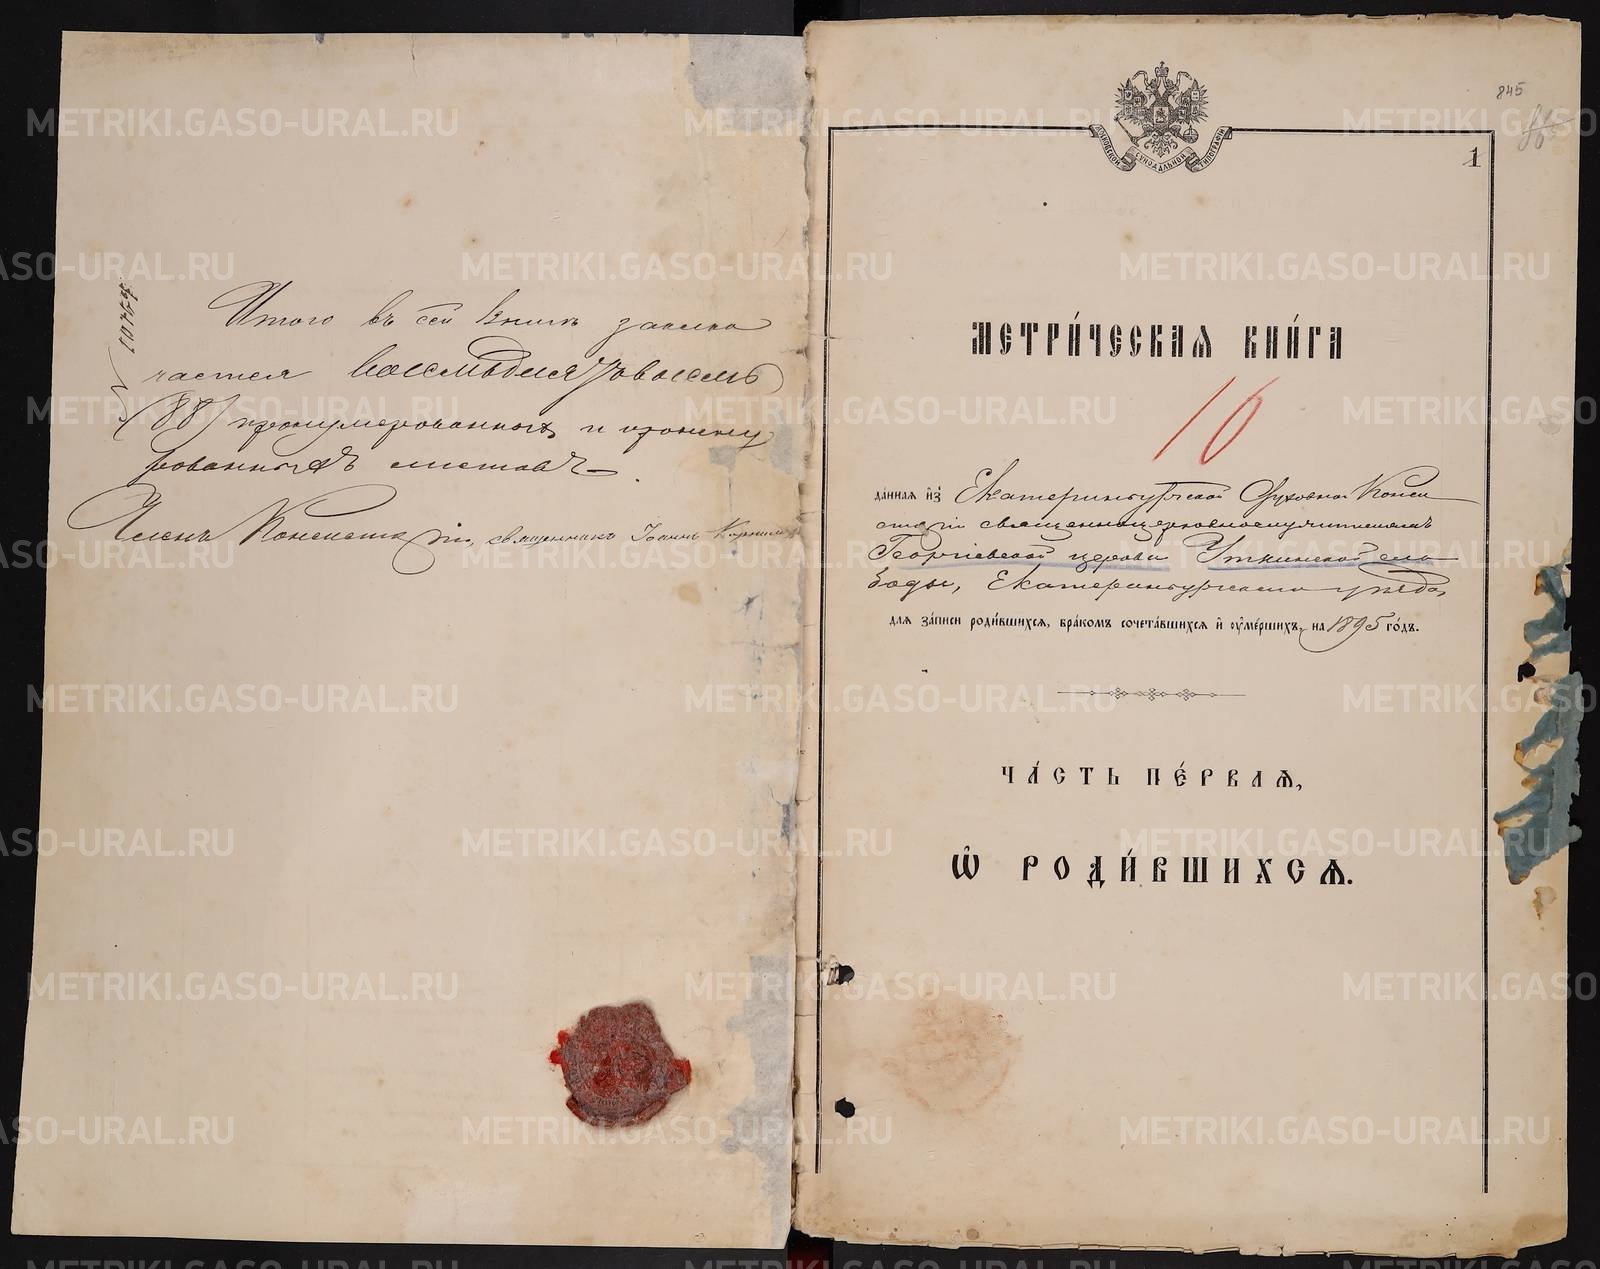 Итого въ сей книгѣ заклю
чается восемьдесятъ восемь
(88) пронумерованныхъ и прошну
рованныхъ листовъ
Членъ Консисторіи, священникъ Іоаннъ
845
1
МОСКОВСКОЙ СУНОДАЛЬНОЙ ТИПОГРАФІИ
МЕТРИ́ЧЕСКАѦ КНИ́ГА
16
да́нная и҆з̾ Екатеринбургской Духовной Конси
сторіи священноцерковнослужителямъ
Георгіевской церкви Уткинской сло
боды, Екатеринбургскаго уѣзда,
для за́писи роди́вшихся, бра́комъ сочета́вшихся и҆ ᲂу҆ме́ршихъ, на 1895 го́дъ.
ЧА́СТЬ ПЕ́РВАѦ,
Ѽ РОДИ́ВШИХСѦ.
METRIKI.GASO-URAL.RU